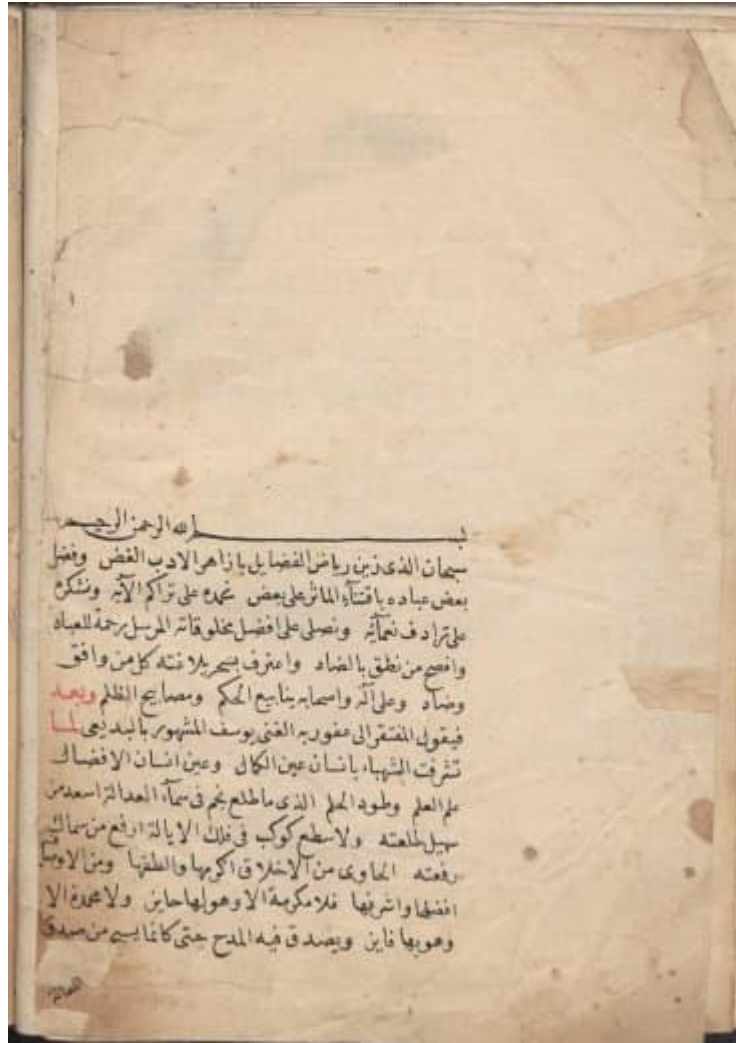 بسم الله الرحمن الرحيم
سبحان الذى زين رياض الفضايل بازاهر الادب الغض وفضل
بعض عباده باقتنآء الماثر على بعض نحمده على تراكم الآئه ونشكره
على ترادف نعمآئه ونصلى على افضل مخلوقاته المرسل رحمة للعباد
وافصح من نطق بالضاد واعترف بسحر بلاغته كل من وافق
وضاد وعلى آله واصحابه ينابيع الحكم ومصابيح الظلم وبعد
فيقول المفتقر الى عفو ربه الغنى يوسف المشهور بالبديعى لما
تشرفت الشهباء بانسان عين الكمال وعين انسان الافضال
علم العلم وطود الحلم الذى ما طلع نجم فى سمآء العدالة اسعد من
سهيل طلعته ولا سطع كوكب فى فلك الايالة ارفع من سماك
رفعته الحاوى من الاخلاق اكرمها والطفها ومن الاوصاف
افضلها واشرفها فلا مكرمة الا وهو لها حايز ولا محمدة الا
وهو بها فايز ويصدق فيه المدح حتى كانما يسبح من صدق